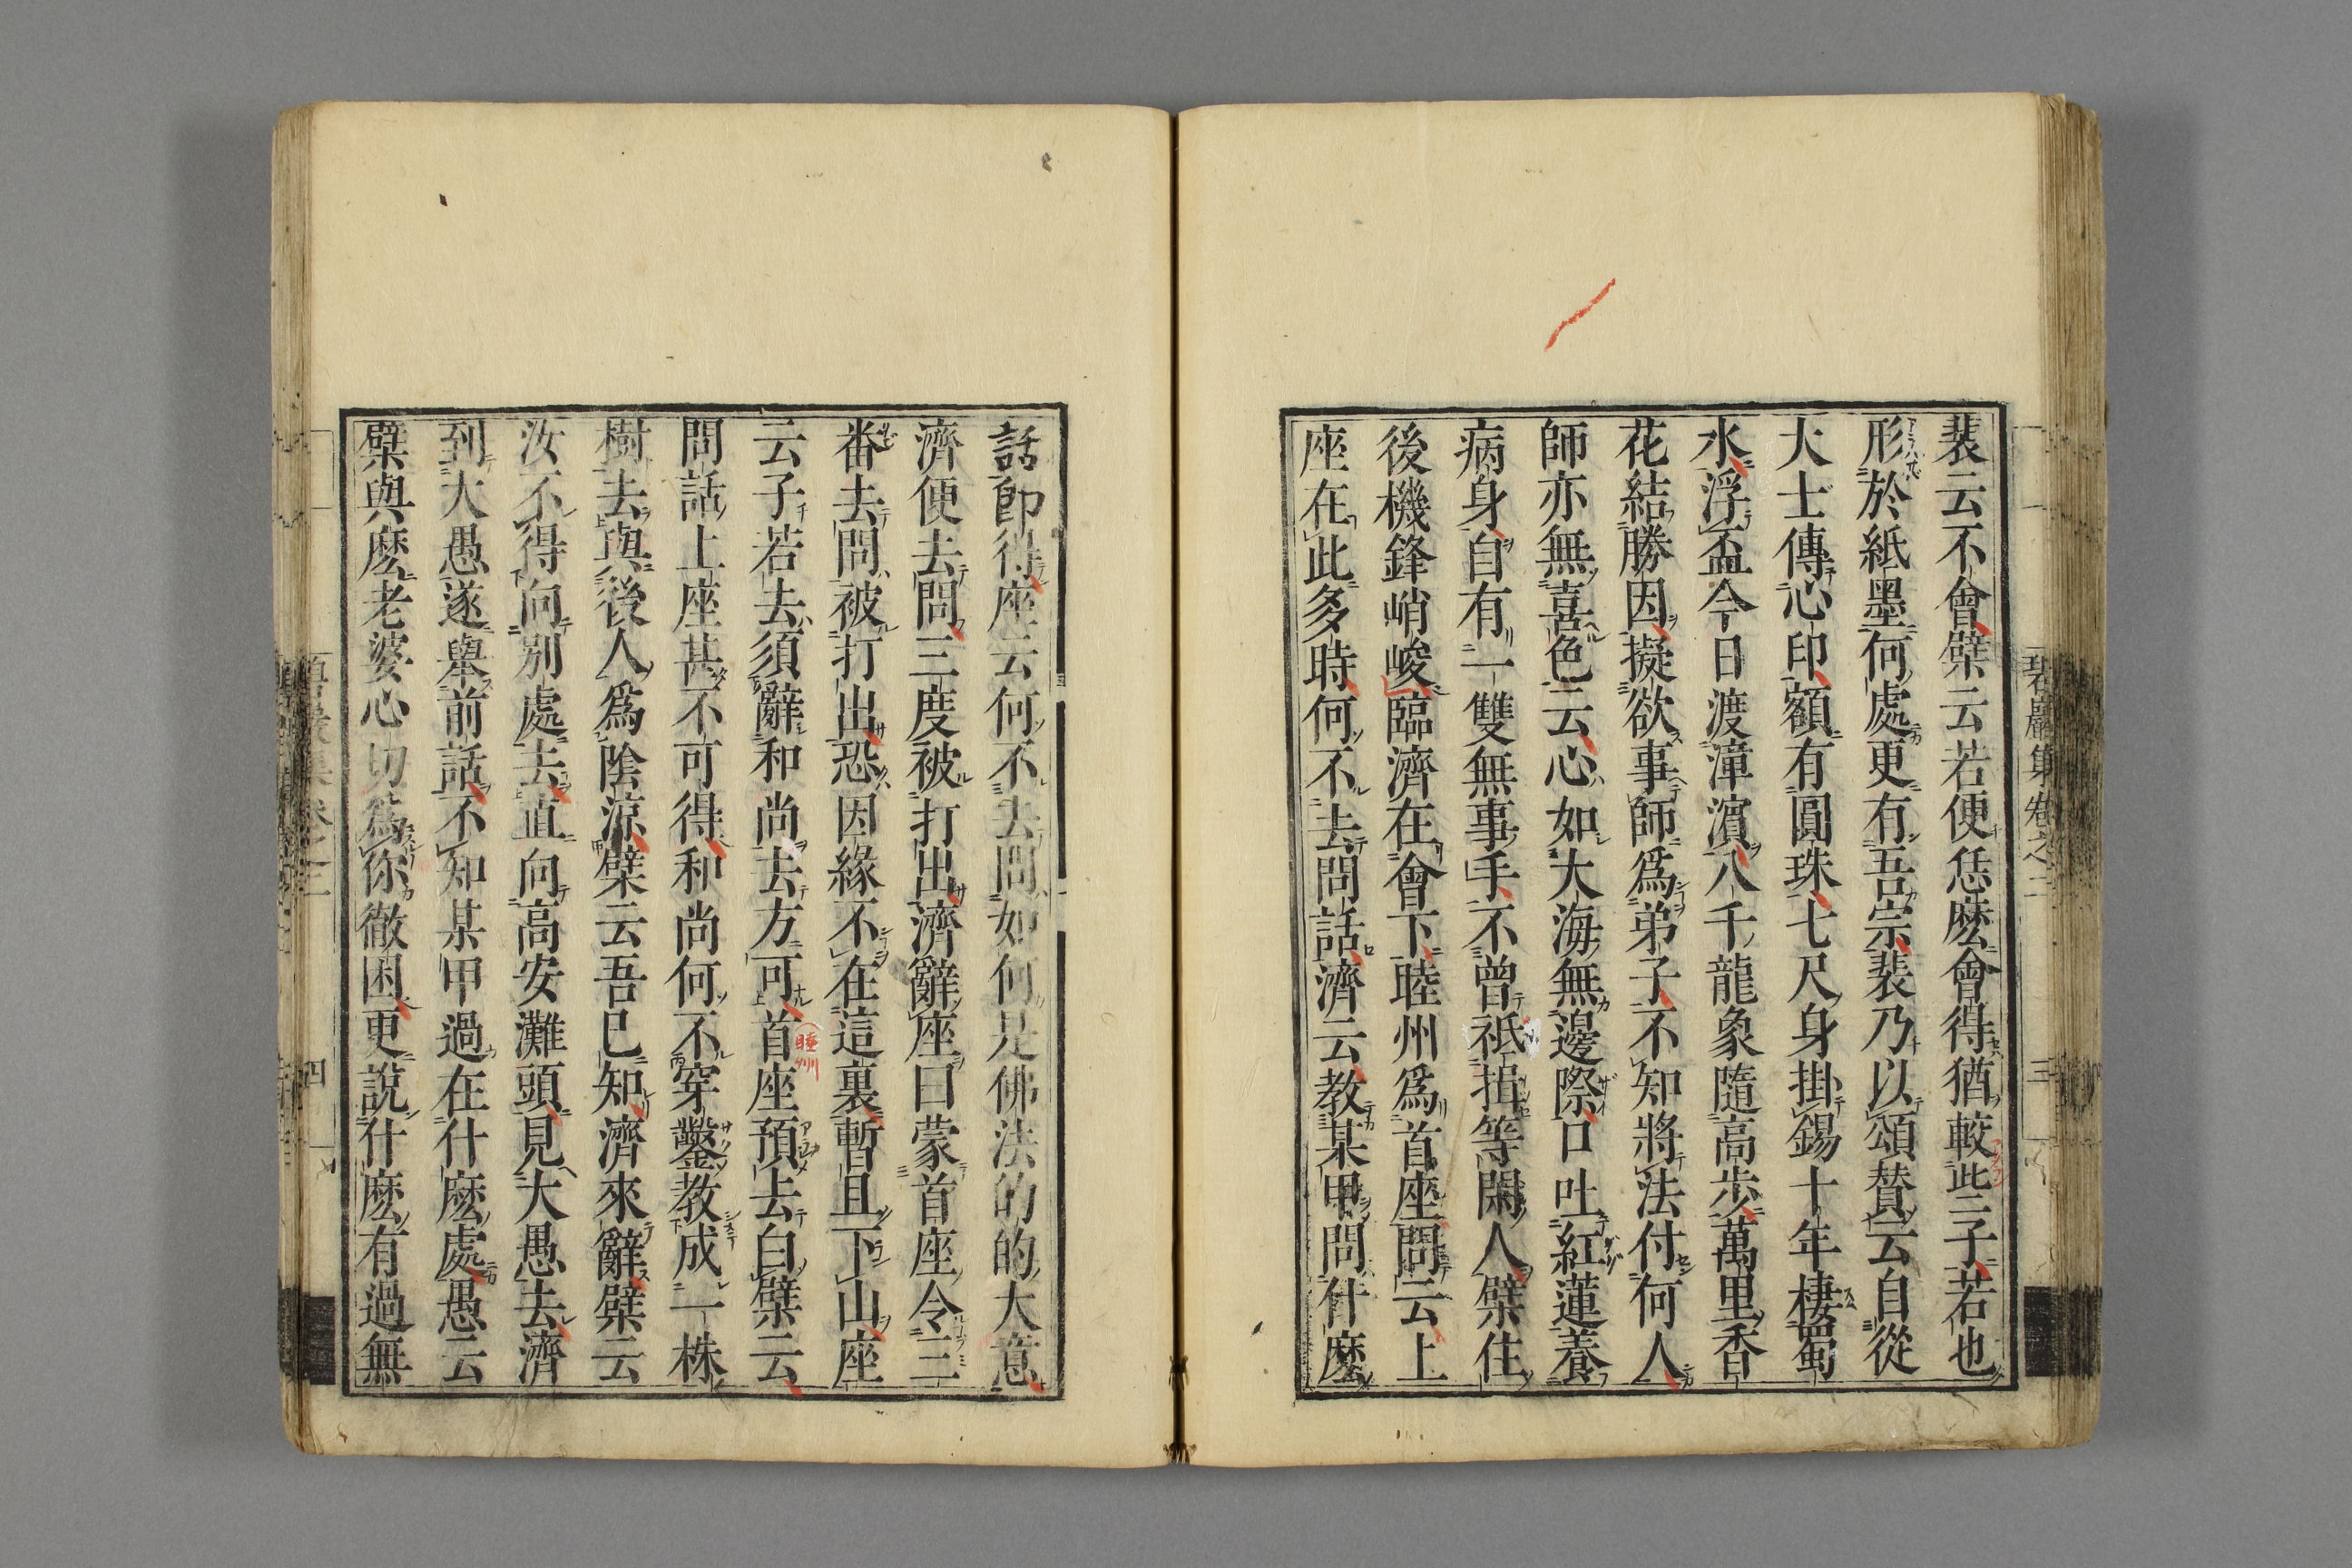 裴云不會檗云若便恁麽會得猶較些子若也
形於紙墨何處更有吾宗裴乃以頌賛云自從
大士傳心印額有圓珠七尺身掛錫十年棲蜀
水浮盃今日渡漳濱八千龍象隨高歩萬里香
花結勝因擬欲事師爲弟子不知將法付何人
師亦無喜色云心如大海無邊際口吐紅蓮養
病身自有一雙無事手不曽祗揖等閑人檗住
後機鋒峭峻臨濟在會下睦州爲首座問云上
座在此多時何不去問話濟云教某甲問什麽
話即得座云何不去問如何是佛法的的大意
濟便去問三度被打出濟辭座曰蒙首座令三
番去問被打出恐因緣不在這裏暫且下山座
云子若去須辭和尚去方可首座預去白檗云
問話上座甚不可得和尚何不穿鑿教成一株
樹去與後人爲陰涼檗云吾已知濟來辭檗云
汝不得向別處去直向高安灘頭見大愚去濟
到大愚遂舉前話不知某甲過在什麽處愚云
檗與麽老婆心切爲你徹困更說什麽有過無
碧巖集卷之二
三
四
睦州